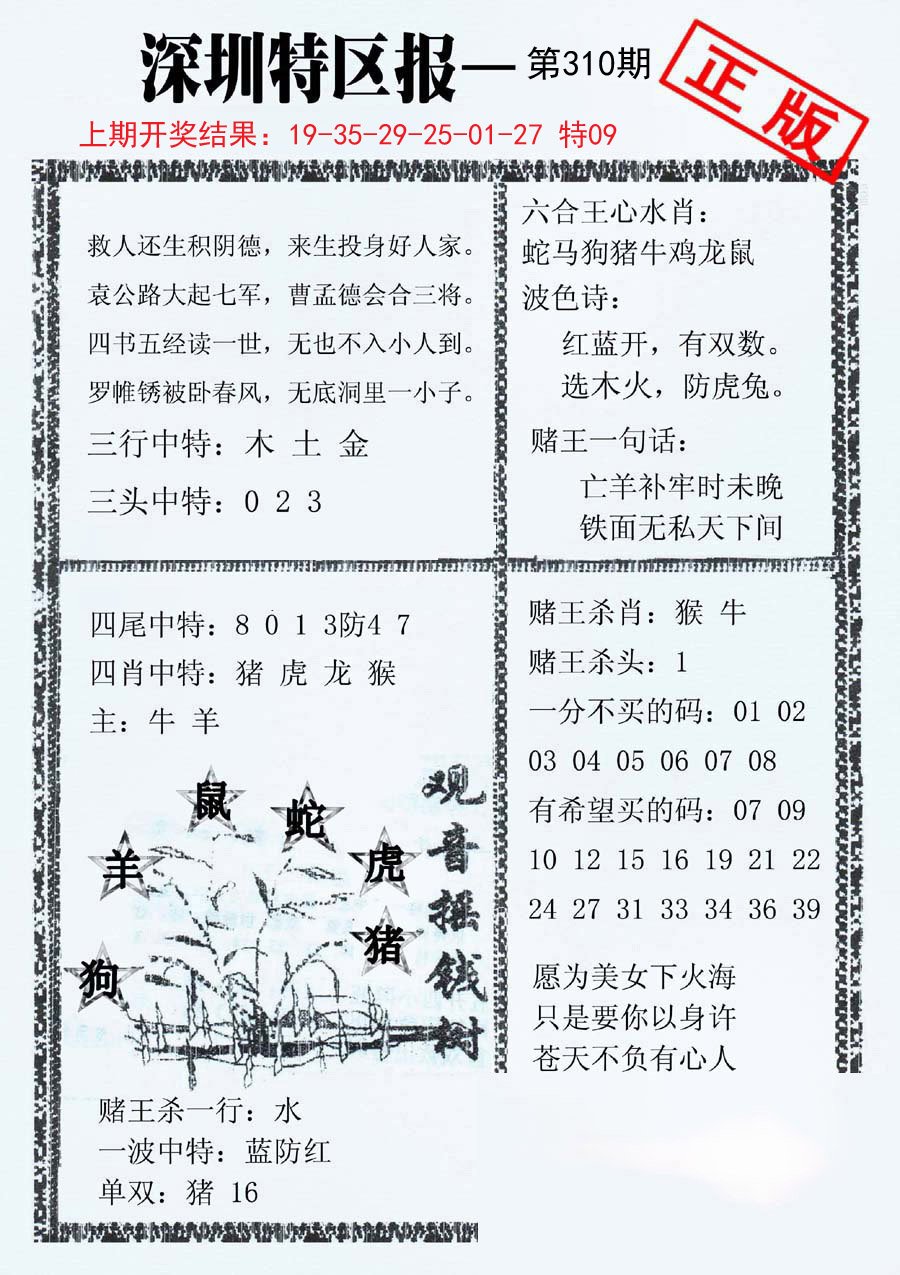 深圳特区报—第310期
正版
上期开奖结果：19-35-29-25-01-27 特09
救人还生积阴德，来生投身好人家。
袁公路大起七军，曹孟德会合三将。
四书五经读一世，无也不入小人到。
罗帷锈被卧春风，无底洞里一小子。
三行中特：木 土 金
三头中特：0 2 3
六合王心水肖：
蛇马狗猪牛鸡龙鼠
波色诗：
红蓝开，有双数。
选木火，防虎兔。
赌王一句话：
亡羊补牢时未晚
铁面无私天下间
四尾中特：8 0 1 3防4 7
四肖中特：猪 虎 龙 猴
主：牛 羊
鼠
蛇
羊
虎
猪
狗
观音摇钱树
赌王杀一行：水
一波中特：蓝防红
单双：猪 16
赌王杀肖：猴 牛
赌王杀头：1
一分不买的码：01 02
03 04 05 06 07 08
有希望买的码：07 09
10 12 15 16 19 21 22
24 27 31 33 34 36 39
愿为美女下火海
只是要你以身许
苍天不负有心人